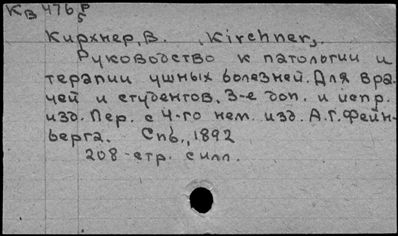 Кв 476 р/5
Кирхнер, В. (Kirchner).
Руководство к патологии и
терапии ушных болезней. Для вра-
чей и студентов. 3-е доп. и испр.
изд. Пер. с 4-го нем. изд. А.Г. Фейн-
берга. Спб., 1892
208 стр. с илл.